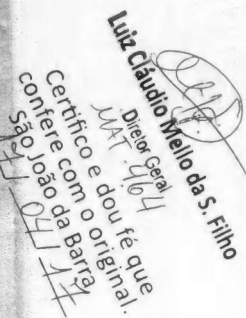 Luiz Cláudio Mello da S. Filho
Diretor Geral
MAT. 464
Certifico e dou fé que
confere com o original.
São João da Barra
04/17